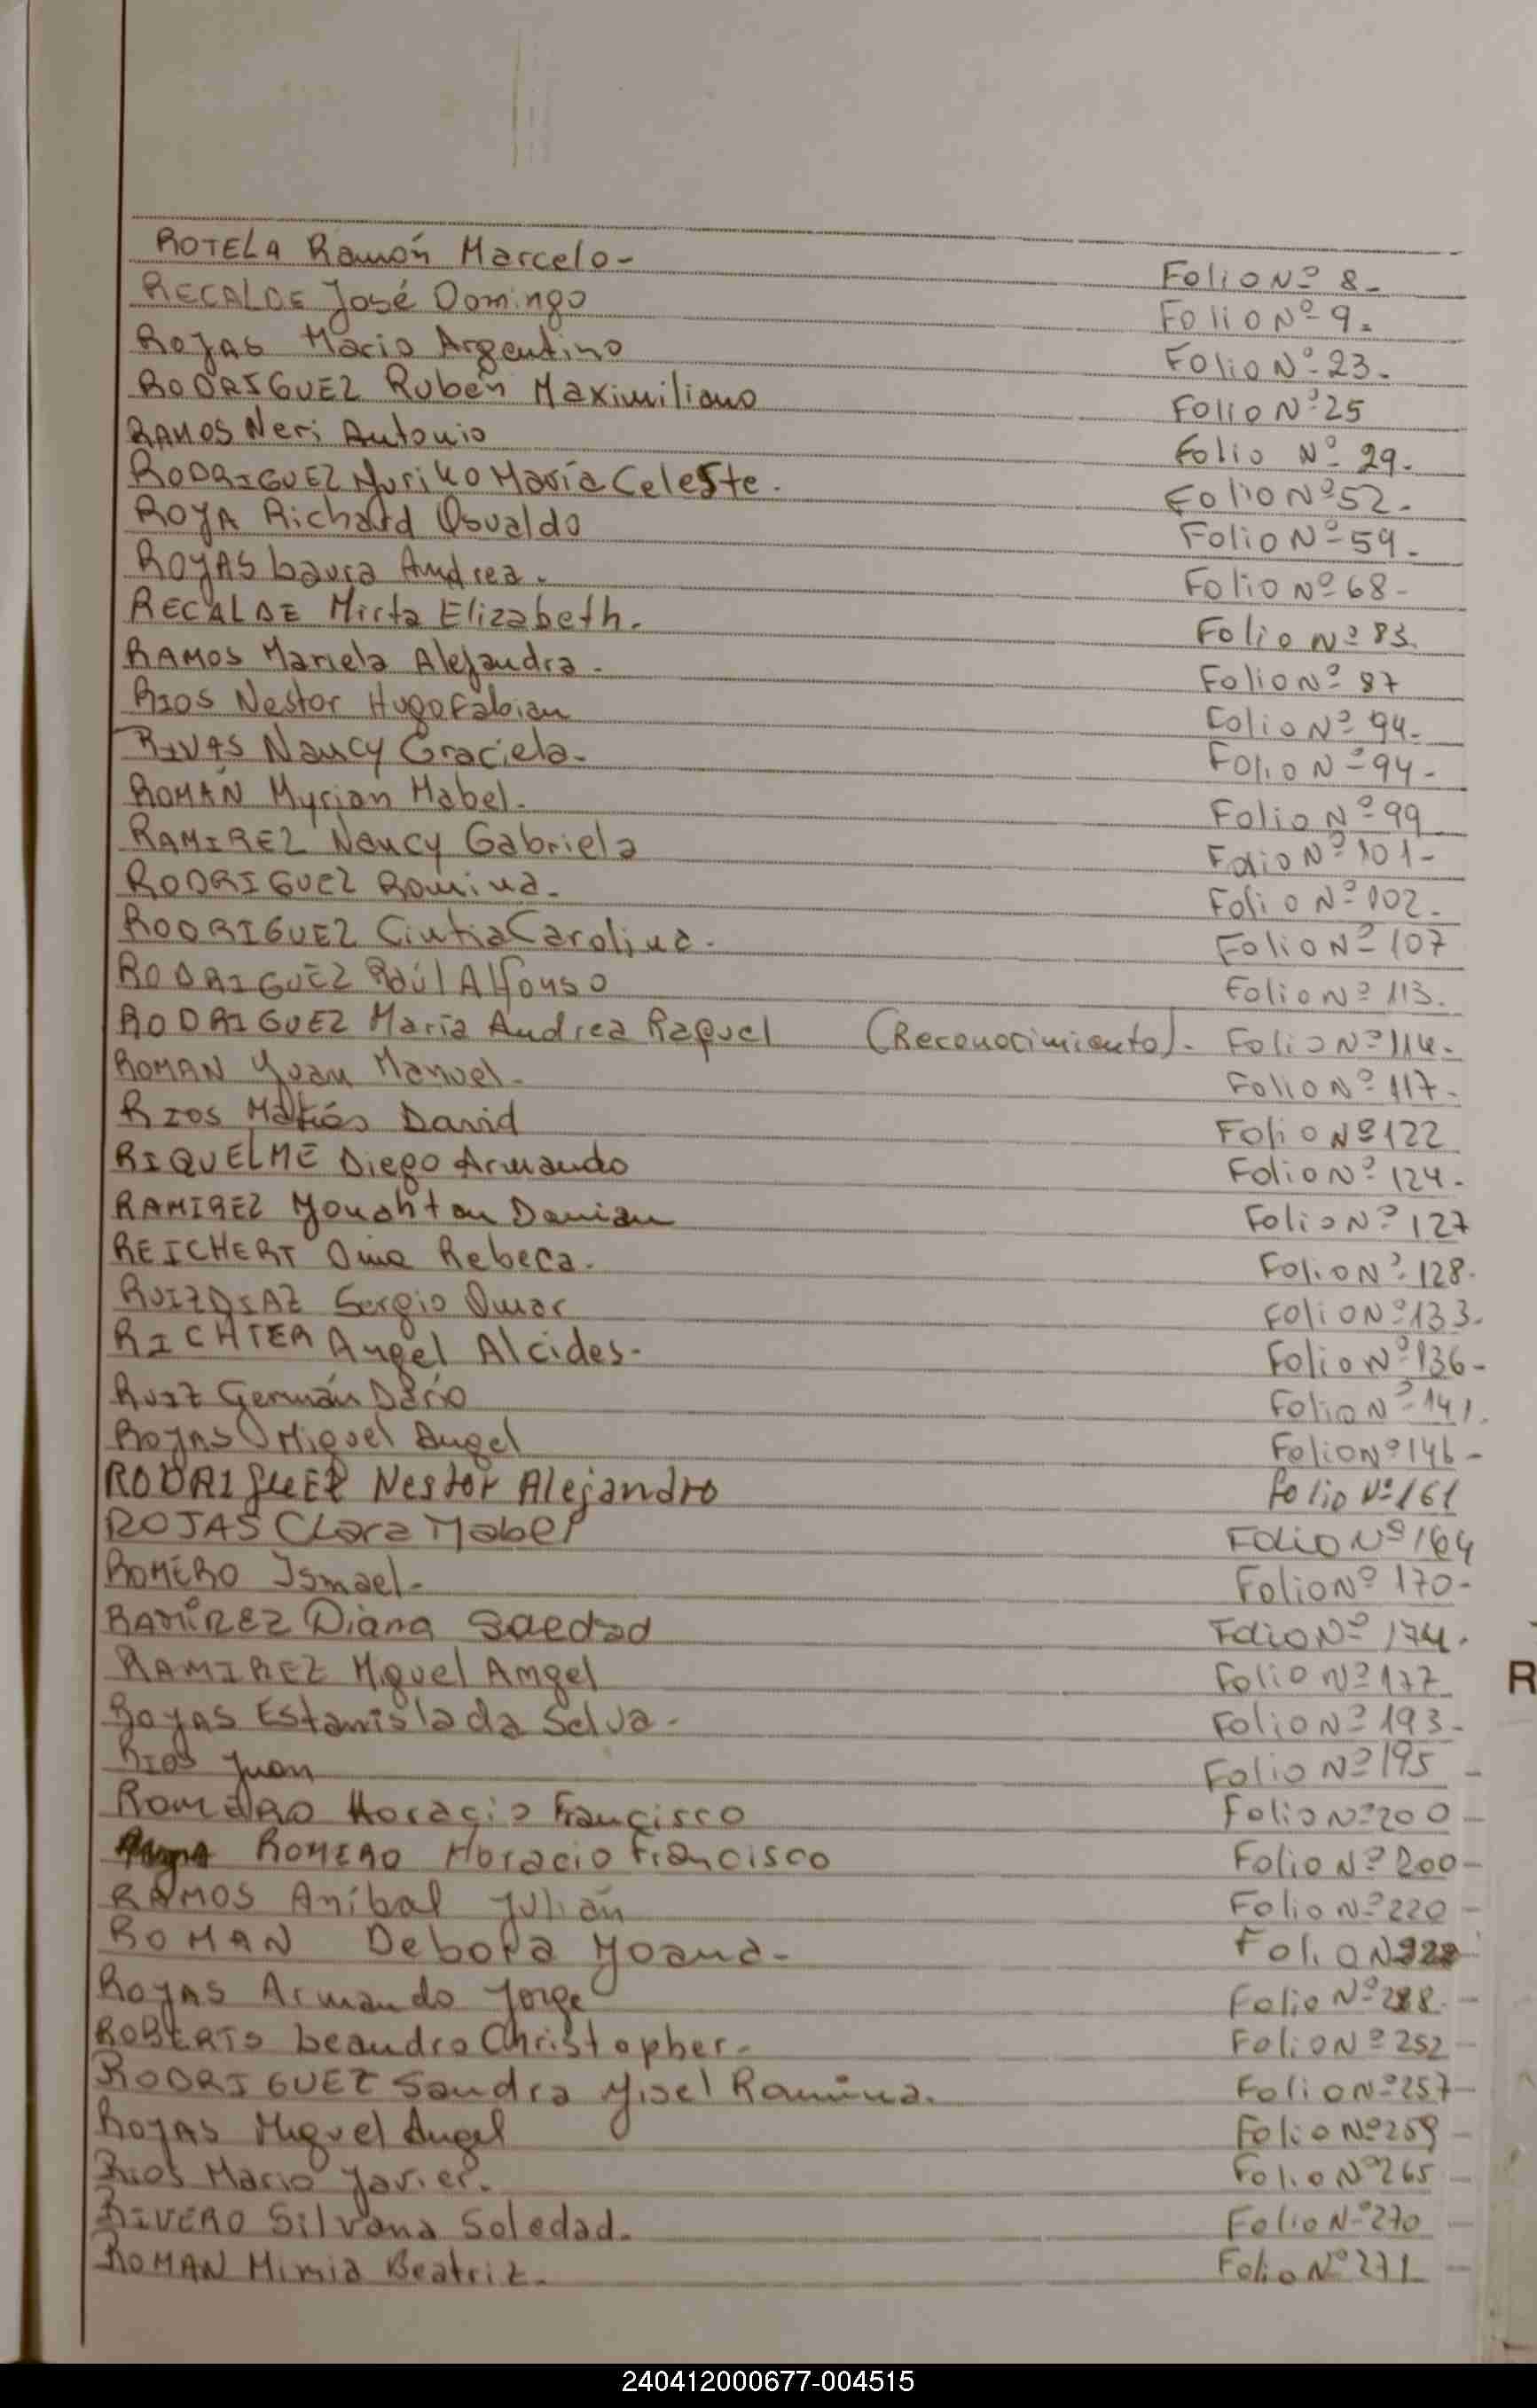 ROTELA Ramón Marcelo- Folio Nº 8-
RECALDE José Domingo Folio Nº 9-
Rojas Mario Argentino Folio Nº 23-
RODRIGUEZ Rubén Maximiliano Folio Nº 25
RAMOS Neri Antonio Folio Nº 29-
RODRIGUEZ Yuriko María Celeste. Folio Nº 52-
ROYA Richard Osvaldo Folio Nº 59-
ROJAS Laura Andrea. Folio Nº 68-
RECALDE Mirta Elizabeth. Folio Nº 83.
RAMOS Mariela Alejandra- Folio Nº 87
RIOS Nestor Hugo Fabian Folio Nº 94-
RIVAS Nancy Graciela- Folio Nº 94-
ROMÁN Myrian Mabel- Folio Nº 99
RAMIREZ Nancy Gabriela Folio Nº 101-
RODRIGUEZ Romina- Folio Nº 102-
RODRIGUEZ Cintia Carolina- Folio Nº 107
RODRIGUEZ Raúl Alfonso Folio Nº 113.
RODRIGUEZ María Andrea Raquel (Reconocimiento)- Folio Nº 114-
ROMAN Yoan Manuel- Folio Nº 117-
RIOS Matías David Folio Nº 122
RIQUELME Diego Armando Folio Nº 124-
RAMIREZ Yonahtan Damian Folio Nº 127
REICHERT Rebeca- Folio Nº 128-
RUIZ DIAZ Sergio Omar Folio Nº 133-
RICHTER Angel Alcides- Folio Nº 136-
RUIZ Germán Dario Folio Nº 141.
ROJAS Miguel Angel Folio Nº 146-
RODRIGUEZ Nestor Alejandro folio Nº 161
ROJAS Clara Mabel Folio Nº 164
ROMERO Ismael- Folio Nº 170-
RAMÍREZ Diana Soledad Folio Nº 174.
RAMIREZ Miguel Angel Folio Nº 177
ROJAS Estanislada Selva- Folio Nº 193-
RIOS Juan Folio Nº 195 -
ROMERO Horacio Francisco Folio Nº 200 -
ROMERO Horacio Francisco Folio Nº 200-
RAMOS Aníbal Julián Folio Nº 220 -
ROMAN Debora Yoana- Folio Nº
ROJAS Armando Jorge Folio Nº -
ROBERTS Leandro Christopher- Folio Nº 252 -
RODRIGUEZ Sandra Yisel Romina. Folio Nº 257-
ROJAS Miguel Angel Folio Nº 259 -
RIOS Mario Javier. Folio Nº 265 -
RIVERO Silvana Soledad. Folio Nº 270 -
ROMAN Mimia Beatriz- Folio Nº 271 -
R
240412000677-004515